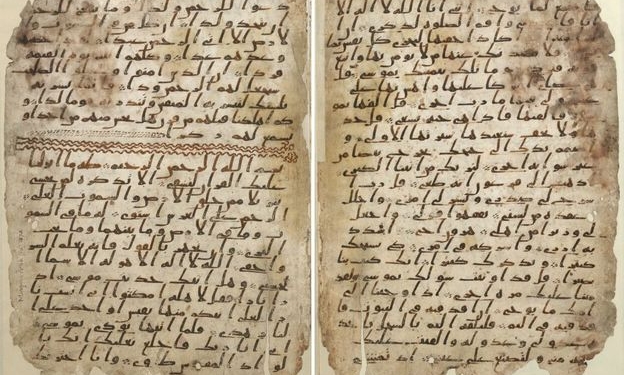 دعوا للرحمن ولدا وما ينبغى للرحمن
ان يتخذ ولدا ان كل من فى السموت و
الارض الا اتى الرحمن عبدا لقد احصيهم
وعدهم عدا وكلهم اتيه يوم القيمه
فردا ان الذين امنوا وعملوا الصلحت
سيجعل لهم الرحمن ودا فانما يسرنه
بلسنك لتبشر به المتقين وتنذر به قوما لدا و
كم اهلكنا قبلهم من قرن هل تحس منهم من احد او
تسمع لهم ركزا
بسم الله الرحمن الرحيم طه ما انزلنا
عليك القران لتشقى الا تذكره لمن يخشى
تنزيلا ممن خلق الارض والسموت العلى
الرحمن على العرش استوى له ما فى السمو
ت وما فى الارض وما بينهما وما تحت
الثرى وان تجهر بالقول فانه يعلم السر
واخفى الله لا اله الا هو له الاسما ا
لحسنى وهل اتيك حديث موسى اذ
را نارا فقل لاهله امكثوا انى انست نا
را لعلى اتيكم منها بقبس او اجد على ا
لنار هدى فلما اتيها نودى يموسى
انى انا ربك فاخلع نعليك انك با
لواد المقدس طوى وانا اخترتك
فاستمع لما يوحى اننى انا الله لا اله الا
انا فاعبدنى واقم الصلوه لذكرى ان
الساعه اتيه اكاد اخفيها لتجزى كل نفس بما
تسعى فلا يصدنك عنها من لا يومن بها واتبع
هويه فتردى وما تلك بيمينك يموسى قل
هى عصاى اتوكوا عليها واهش بها على
غنمى ولى فيها مرب اخرى قل القها يمو
سى فالقيها فاذا هى حيه تسعى قل خذ
ها ولا تخف سنعيدها سيرتها الاولى و
اضمم يدك الى جنحك تخرج بيضا من
غير سو ايه اخرى لنريك من ايتنا الكبرى
اذهب الى فرعون انه طغى قل رب ا
شرح لى صدرى ويسر لى امرى واحلل
عقده من لسنى يفقهوا قولى واجعل
لى وزيرا من اهلى هرون اخى اشدد
به ازرى واشركه فى امرى كى نسبحك
كثيرا ونذكرك كثيرا انك كنت بنا
بصيرا قل قد اوتيت سولك يموسى ولقد
مننا عليك مره اخرى اذ اوحينا الى
امك ما يوحى ان اقذفيه فى التبوت فا
قذفيه فى اليم فليلقه اليم بالسحل ياخذ
ه عدو لى وعدو له والقيت عليك
محبه منى ولتصنع على عينى اذ تمشى